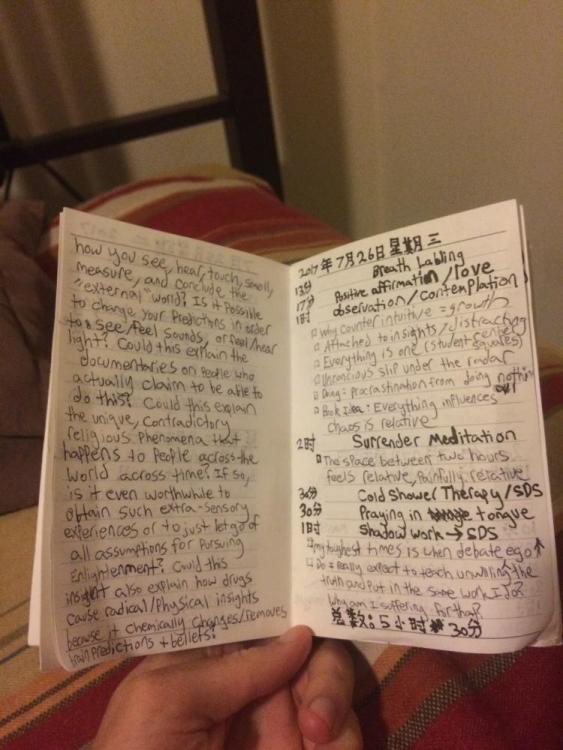 how you see, hear, touch, smell,
measure, and conclude the
"external" world? Is it possible
to change your Predictions in order
to see/feel sounds, or feel/hear
light? Could this explain the
documentaries on People who
actually claim to be able to
do this? Could this explain
the unique, contradictory
religious Phenomena that
happens to People across the
world across time? If so,
is it even worthwhile to
obtain such extra-sensory
experiences or to just let go of
all assumptions for Pursuing
Enlightenment? Could this
insight also explain how drugs
cause radical/Physical insights
because it chemically changes/removes
brain Predictions + beliefs?
2017年7月26日星期三
Breath Labling
Positive affirmation/love
17分 observation/contemplation
1时
Why counter intuitive = growth
Attached to insights/distracting
Everything is one (student centers squares)
Unconcious slip under the radar
Doing = Procrastination from doing nothing
Book Idea: Everything influences
chaos is relative
2时 Surrender Meditation
The space between two hours
feels relative, painfully relative
30分 Cold Shower Therapy/SDS
30分 Praying in tongue
1时 Shadow work → SDS
my toughest times is when debate ego↑
Do I really expect to teach unwilling the
truth and put in the same work I do?
Why am I suffering for that?
总数: 5小时 30分